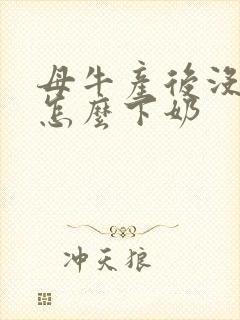 母牛產後沒
怎麼下奶
冲天狼